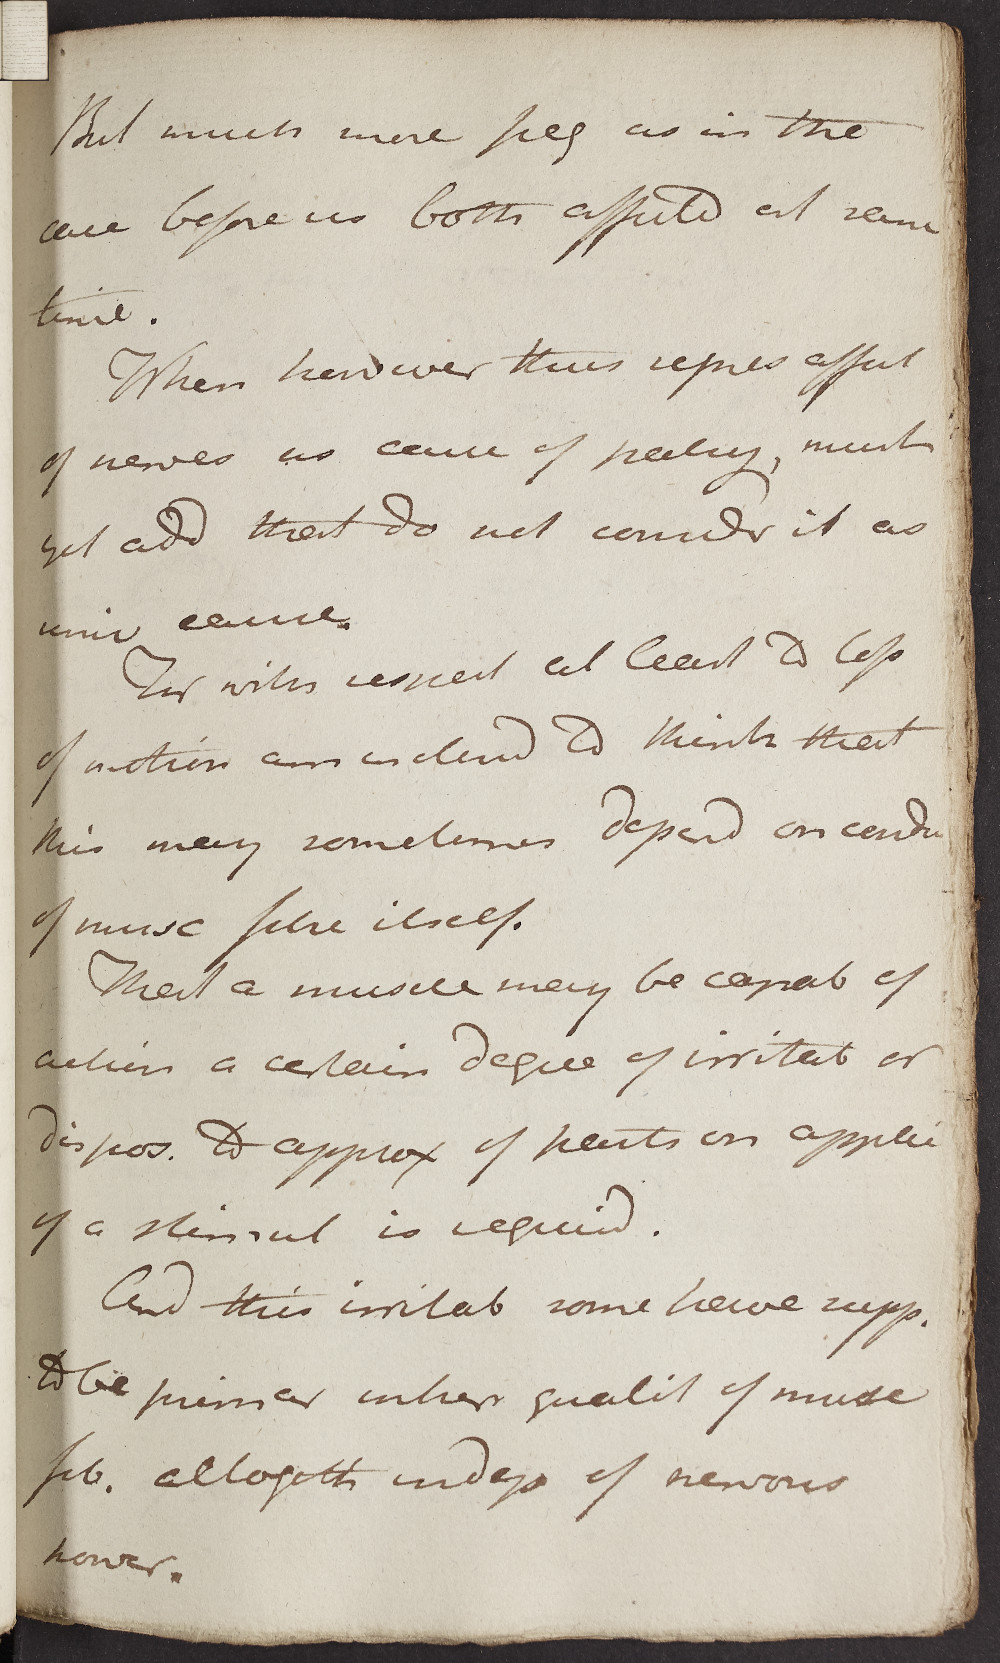 But much more freq as in the
case before us both affectd at same
time.
When however thus repres affect
of nerves as cause of palsy, must
yet add that do not considr it as
univ cause.
For with respect at least to loss
of motion am inclind to think that
this may sometimes depend on condn
of musc fibre itself.
That a muscle may be capab of
action a certain degree of irritab or
dispos. to approx of parts on applic
of a stimul is requird.
And this irritab some have supp.
to be primar inher qualit of musc
fib. altogeth indep of nervous
power.